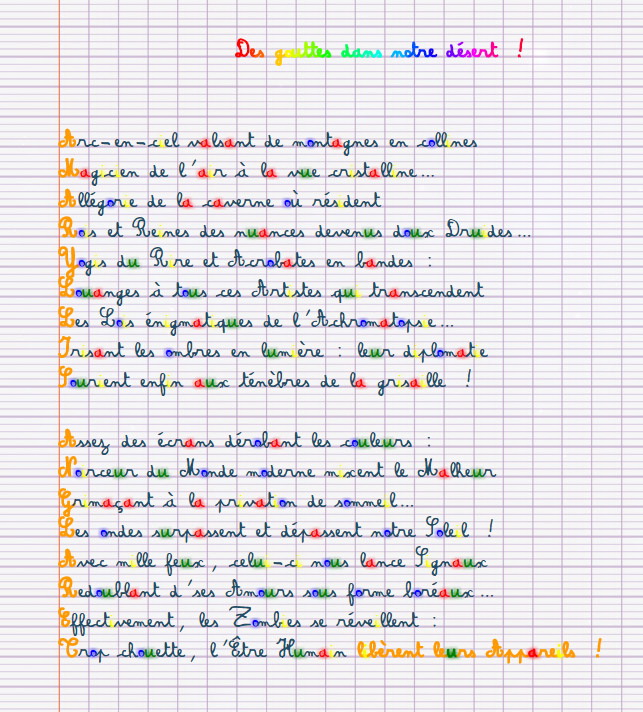 Des gouttes dans notre désert !
Arc-en-ciel valsant de montagnes en collines
Magicien de l'air à la vue cristalline...
Allégorie de la caverne où résident
Rois et Reines des nuances devenus doux Druides...
Yogis du Rire et Acrobates en bandes :
Louanges à tous ces Artistes qui transcendent
Les Lois énigmatiques de l'Achromatopsie...
Irisant les ombres en lumière : leur diplomatie
Sourient enfin aux ténèbres de la grisaille !
Assez des écrans dérobant les couleurs :
Noirceur du Monde moderne mixent le Malheur
Grimaçant à la privation de sommeil...
Les ondes surpassent et dépassent notre Soleil !
Avec mille feux, celui-ci nous lance Signaux
Redoublant d'ses Amours sous forme boréaux...
Effectivement, les Zombies se réveillent :
Trop chouette, l'Être Humain libèrent leurs Appareils !